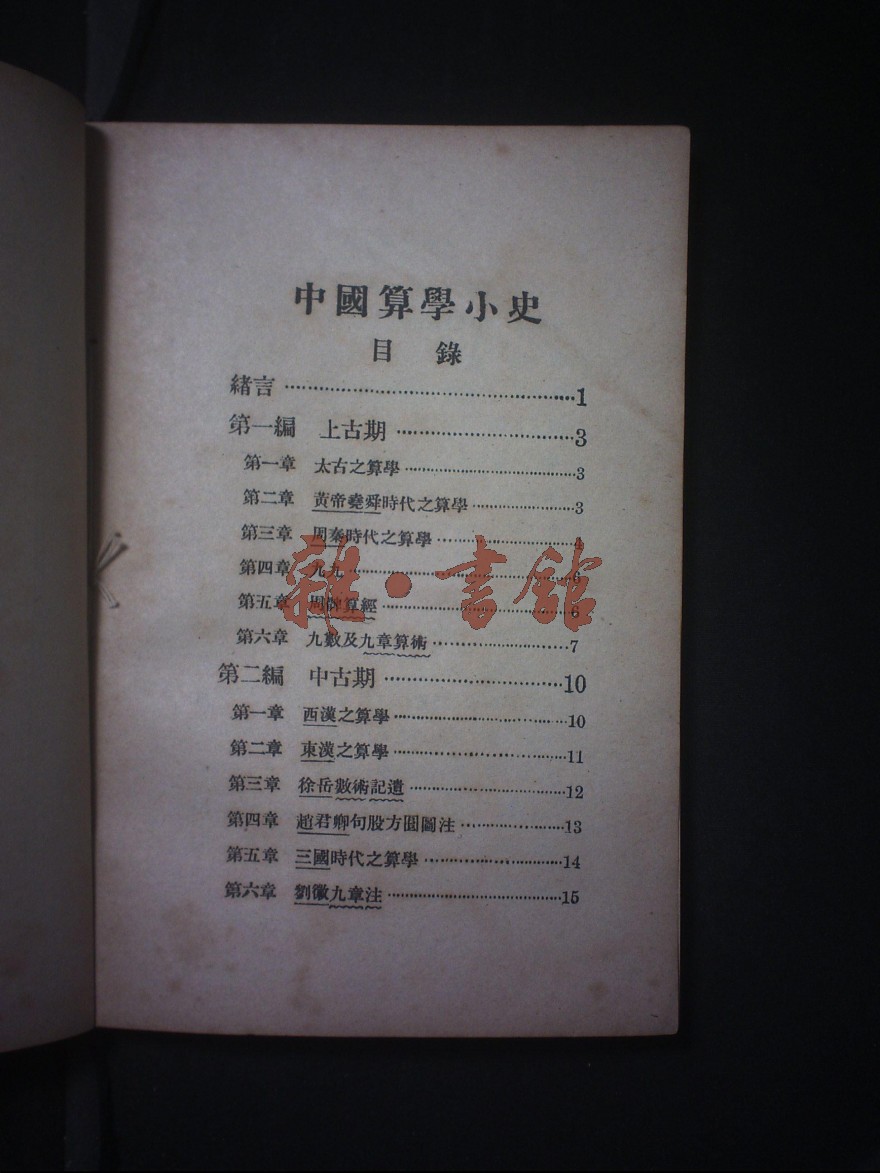 中國算學小史
目 錄
緒言……1
第一編 上古期……3
第一章 太古之算學……3
第二章 黃帝堯舜時代之算學……3
第三章 周秦時代之算學……4
第四章 九九……6
第五章 周髀算經……6
第六章 九數及九章算術……7
第二編 中古期……10
第一章 西漢之算學……10
第二章 東漢之算學……11
第三章 徐岳數術記遺……12
第四章 趙君卿句股方圓圖注……13
第五章 三國時代之算學……14
第六章 劉徽九章注……15
雜·書館